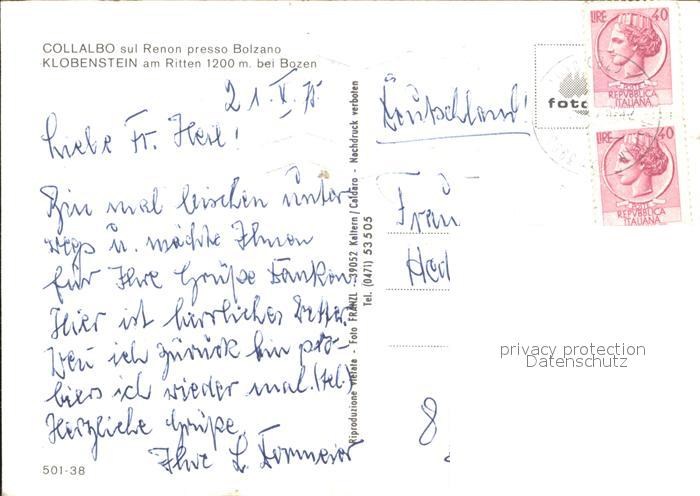 COLLALBO sul Renon presso Bolzano
KLOBENSTEIN am Ritten 1200 m. bei Bozen
21. V. 75
Liebe Fr. Heil!
Bin mal bischen unter-
wegs u. möchte Ihnen
für Ihre Grüße danken.
Hier ist herrliches Wetter.
Wen ich zurück bin pro-
biers ich wieder mal. (tel.)
Herzliche Grüße
Ihre L.
501-38
Riproduzione vietata - Foto FRANZL - 39052 Kaltern/Caldaro - Nachdruck verboten
Tel. (0471) 53505
Deutschland!
Frau
Hed
8
foto
LIRE 40
POSTE
REPVBBLICA
ITALIANA
LIRE 40
POSTE
REPVBBLICA
ITALIANA
privacy protection
Datenschutz